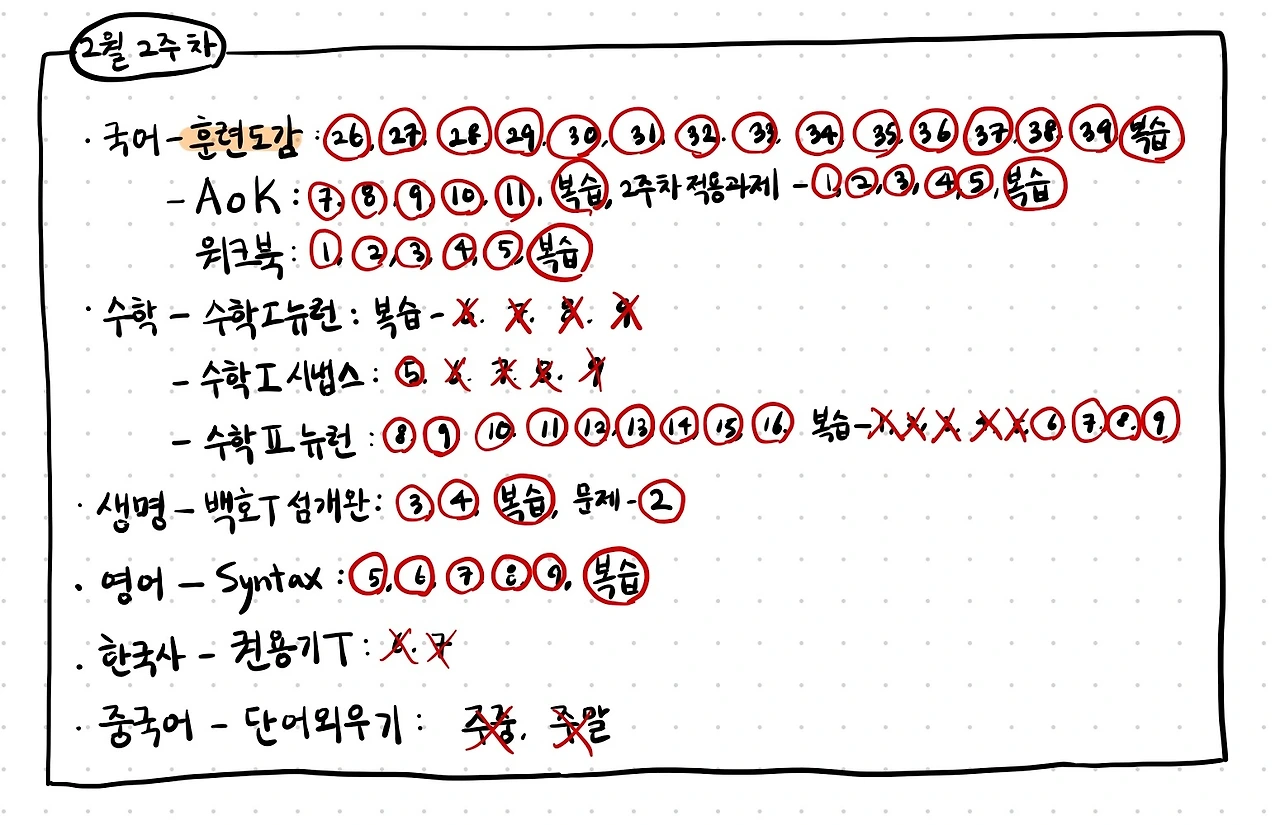 2월 2주차
· 국어 - 훈련도감 : 26, 27, 28, 29, 30, 31, 32, 33, 34, 35, 36, 37, 38, 39 복습
- AoK : 7, 8, 9, 10, 11, 복습, 2주차 적용과제 - 1, 2, 3, 4, 5, 복습
워크북 : 1, 2, 3, 4, 5, 복습
· 수학 - 수학Ⅰ뉴런 : 복습 - 6. 7. 8. 9
- 수학Ⅰ 시냅스 : 5. 6. 7. 8. 9
- 수학Ⅱ 뉴런 : 8, 9 10. 11 12, 13 14, 15, 16. 복습 - 1, 2, 3, 4, 5, 6, 7, 8, 9
· 생명 - 백호T 섬개완 : 3, 4, 복습, 문제 - 2
· 영어 - Syntax : 5, 6, 7, 8, 9, 복습
· 한국사 - 권용기T : 6, 7
· 중국어 - 단어외우기 : 주중, 주말